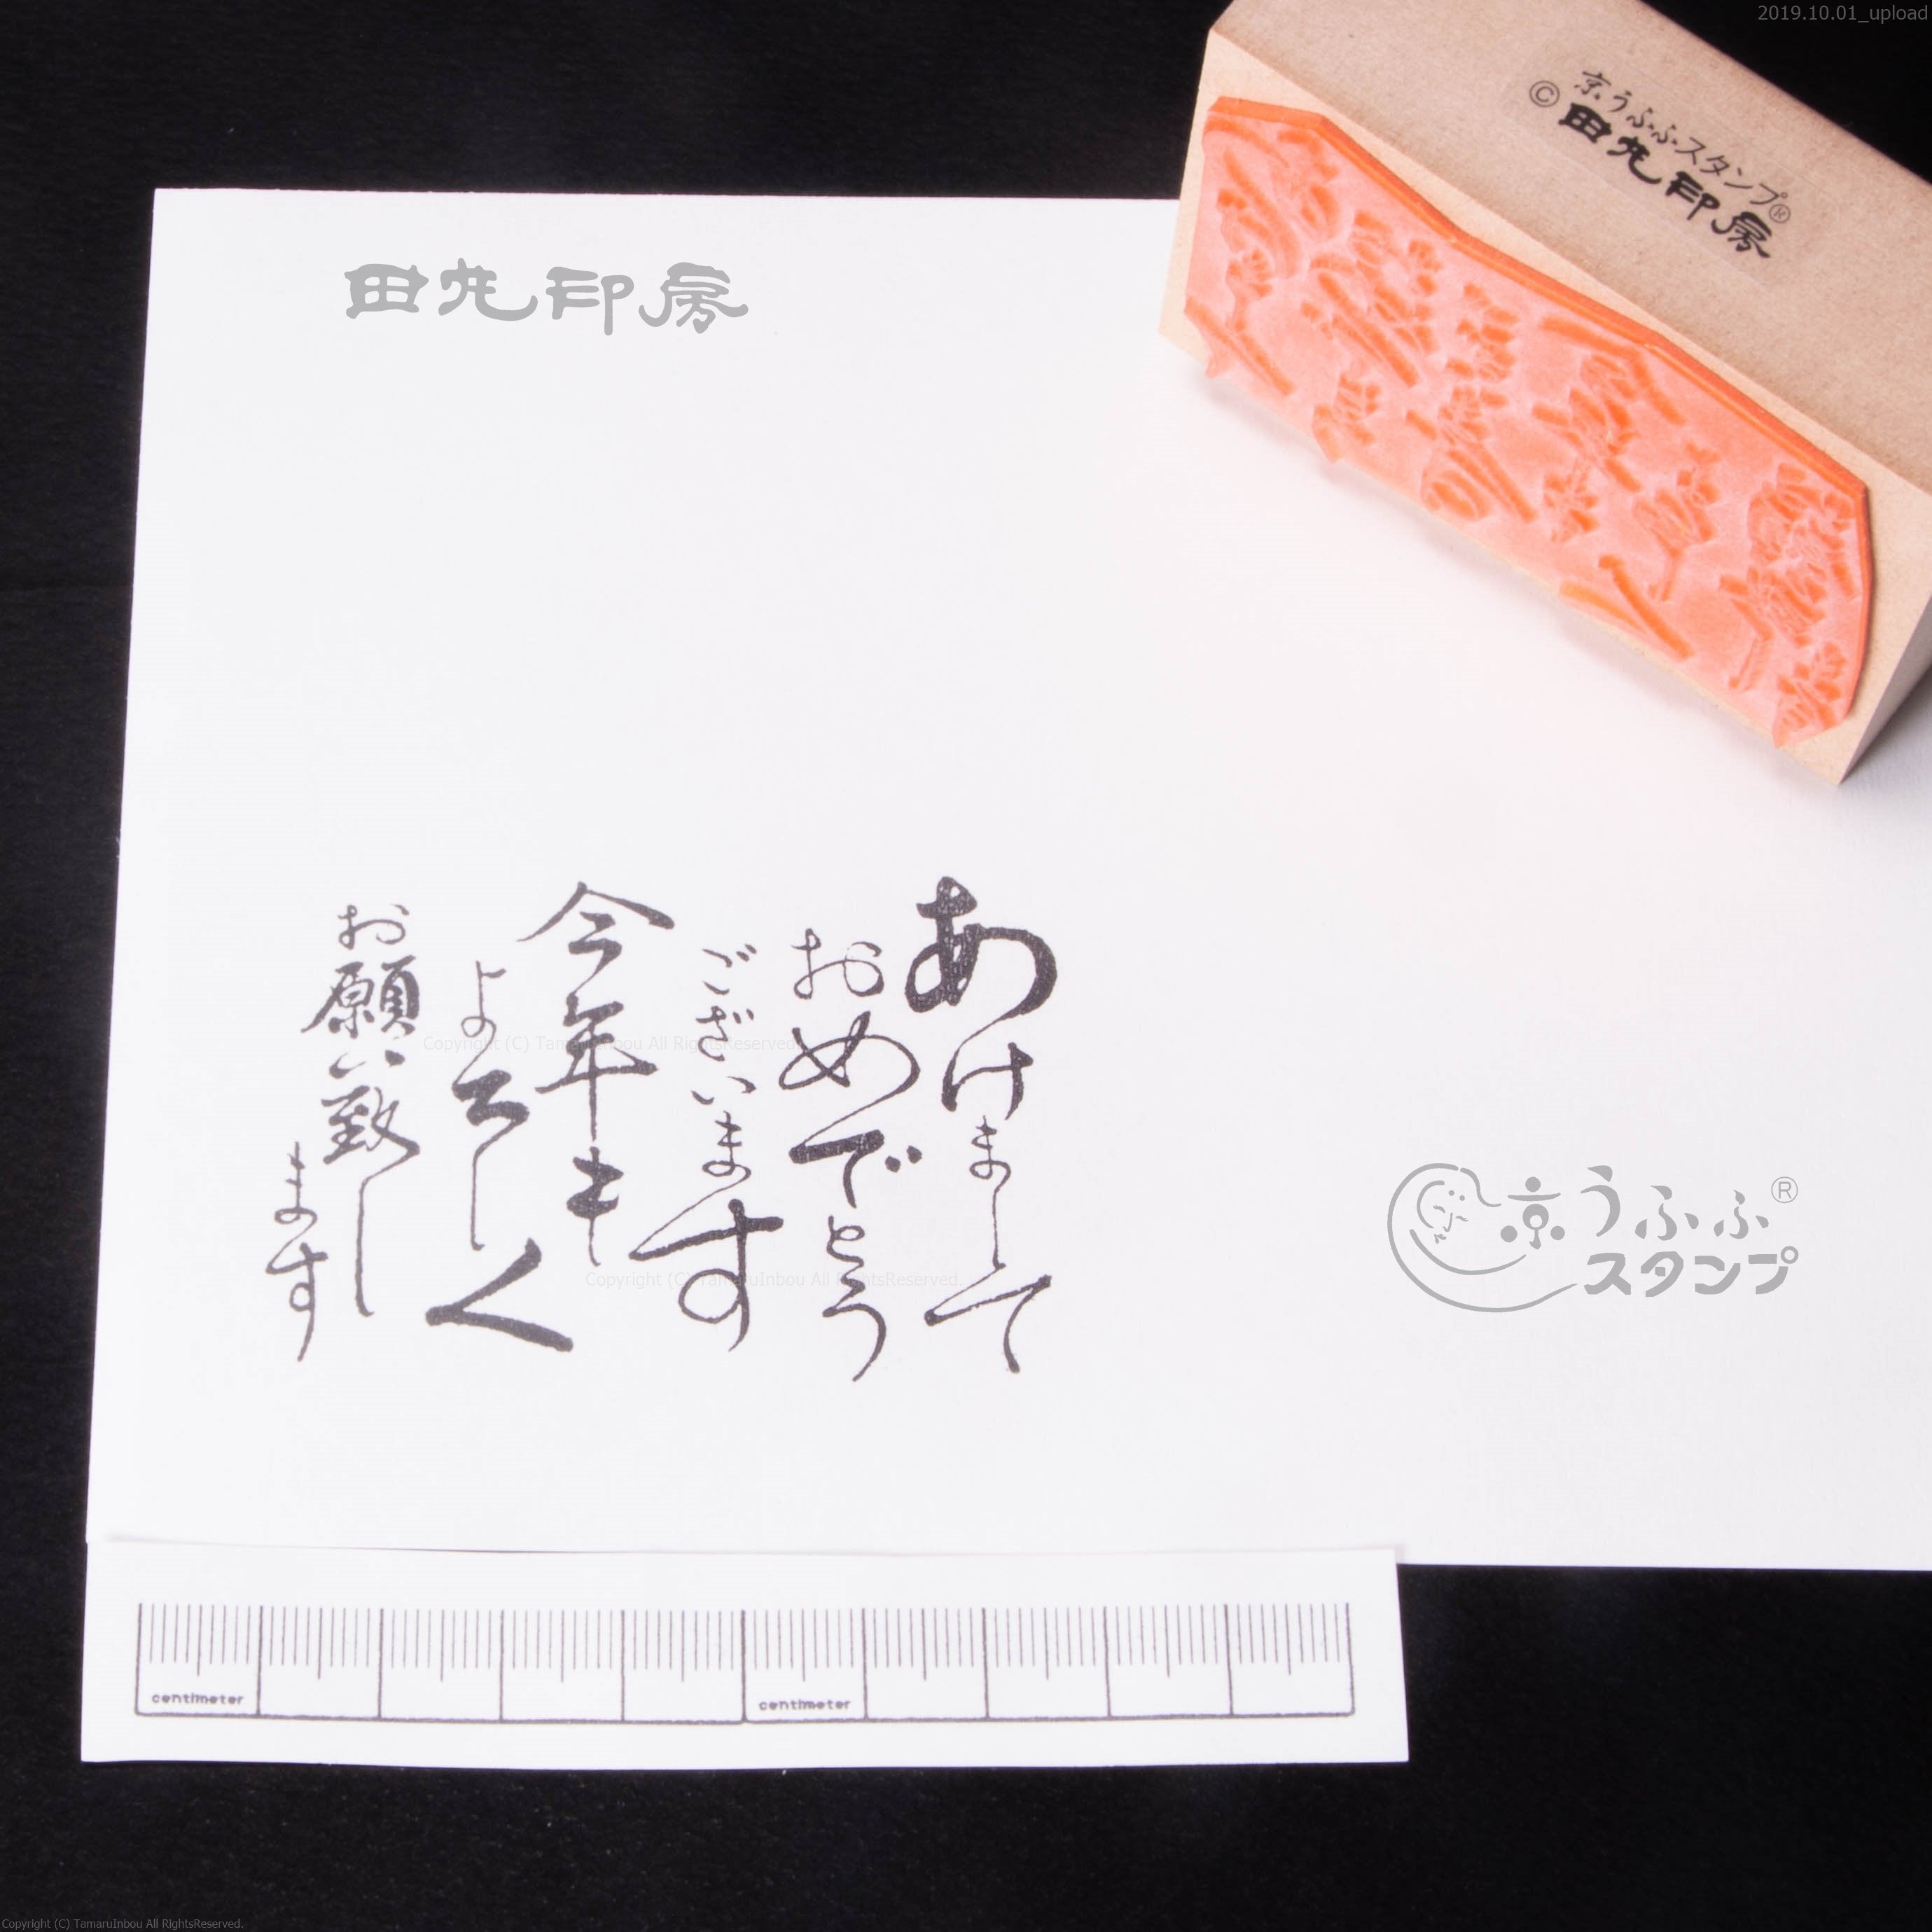 2019.10.01_upload
京うふふスタンプ®
©田丸印房
田丸印房
あけまして
おめでとう
ございます
今年も
よろしく
お願い致し
ます
Copyright (C) TamaruInbou All RightsReserved.
Copyright (C) TamaruInbou All RightsReserved.
京うふふ®
スタンプ
centimeter
centimeter
Copyright (C) TamaruInbou All RightsReserved.